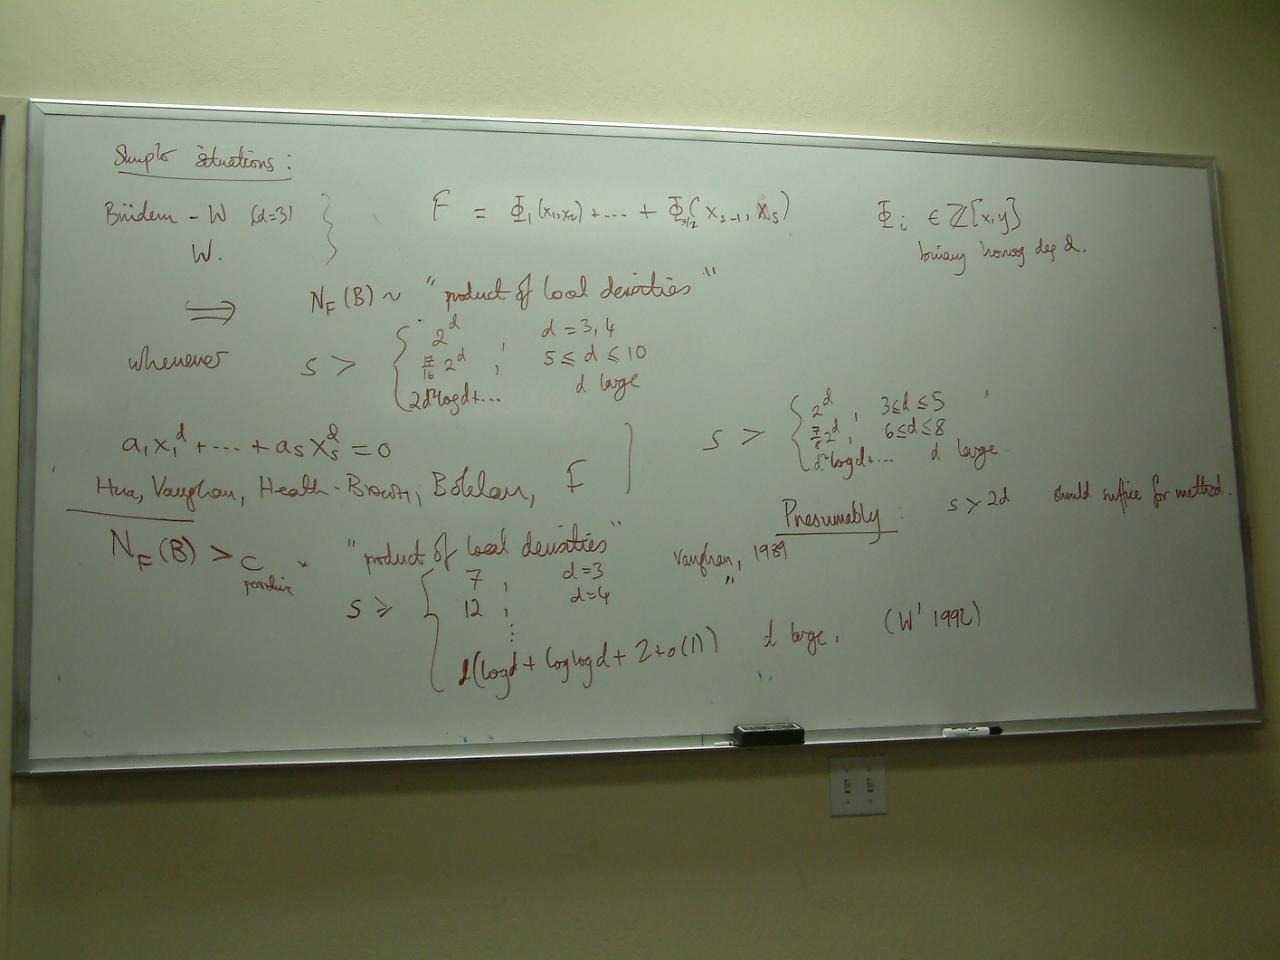 Simple situations:
Brüdern - W (d=3)
W.
F = Φ₁(x₁,x₂) + ... + Φ_{s/2}(x_{s-1}, x_s)
Φ_i ∈ ℤ[x,y]
binary homog deg d.
⟹ N_F(B) ~ "product of local densities"
whenever s > { 2^d, d = 3, 4
7/16 2^d, 5 ≤ d ≤ 10
2d²logd+... d large
a₁x₁^d + ... + a_s x_s^d = 0
Hua, Vaughan, Heath-Brown, Boklan, F
s > { 2^d, 3≤d≤5
7/8 2^d, 6≤d≤8
d²logd+... d large
Presumably: s > 2d should suffice for method.
N_F(B) > C × "product of local densities"
positive
s ≥ { 7, d=3 Vaughan, 1989
12, d=4 "
⋮
d(logd + loglogd + 2 + o(1)) d large, (W' 1992)